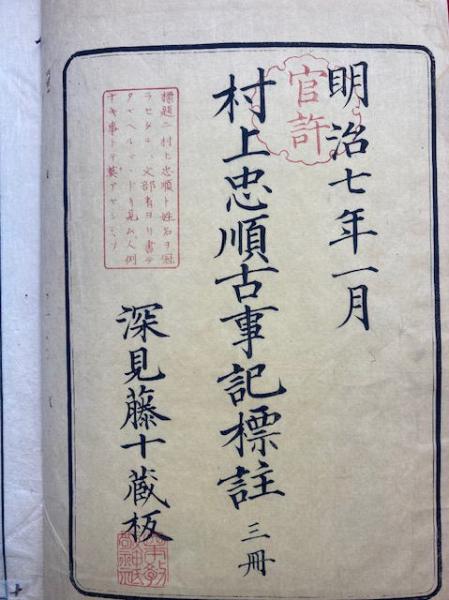 明治七年一月
官許
村上忠順古事記標註 三冊
標題ニ村上忠順ト姓名ヲ冠
ラセタルハ文部省ヨリ書テ
タマヘルマヽナリ見ム人例
ナキ事トテ莫アヤシミソ
深見藤十蔵板